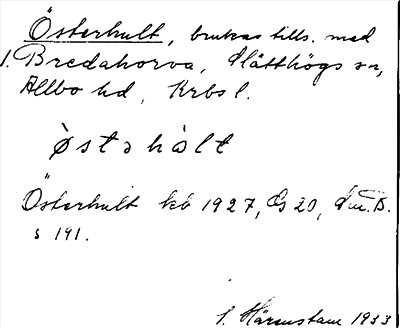 Österhult, brukas tills. med
1. Bredahorva, Slätthögs sn,
Allbo hd, Krbs l.
östəhålt
Österhult kb 1927, GS 20,
s 191.
S. Härenstam 1933